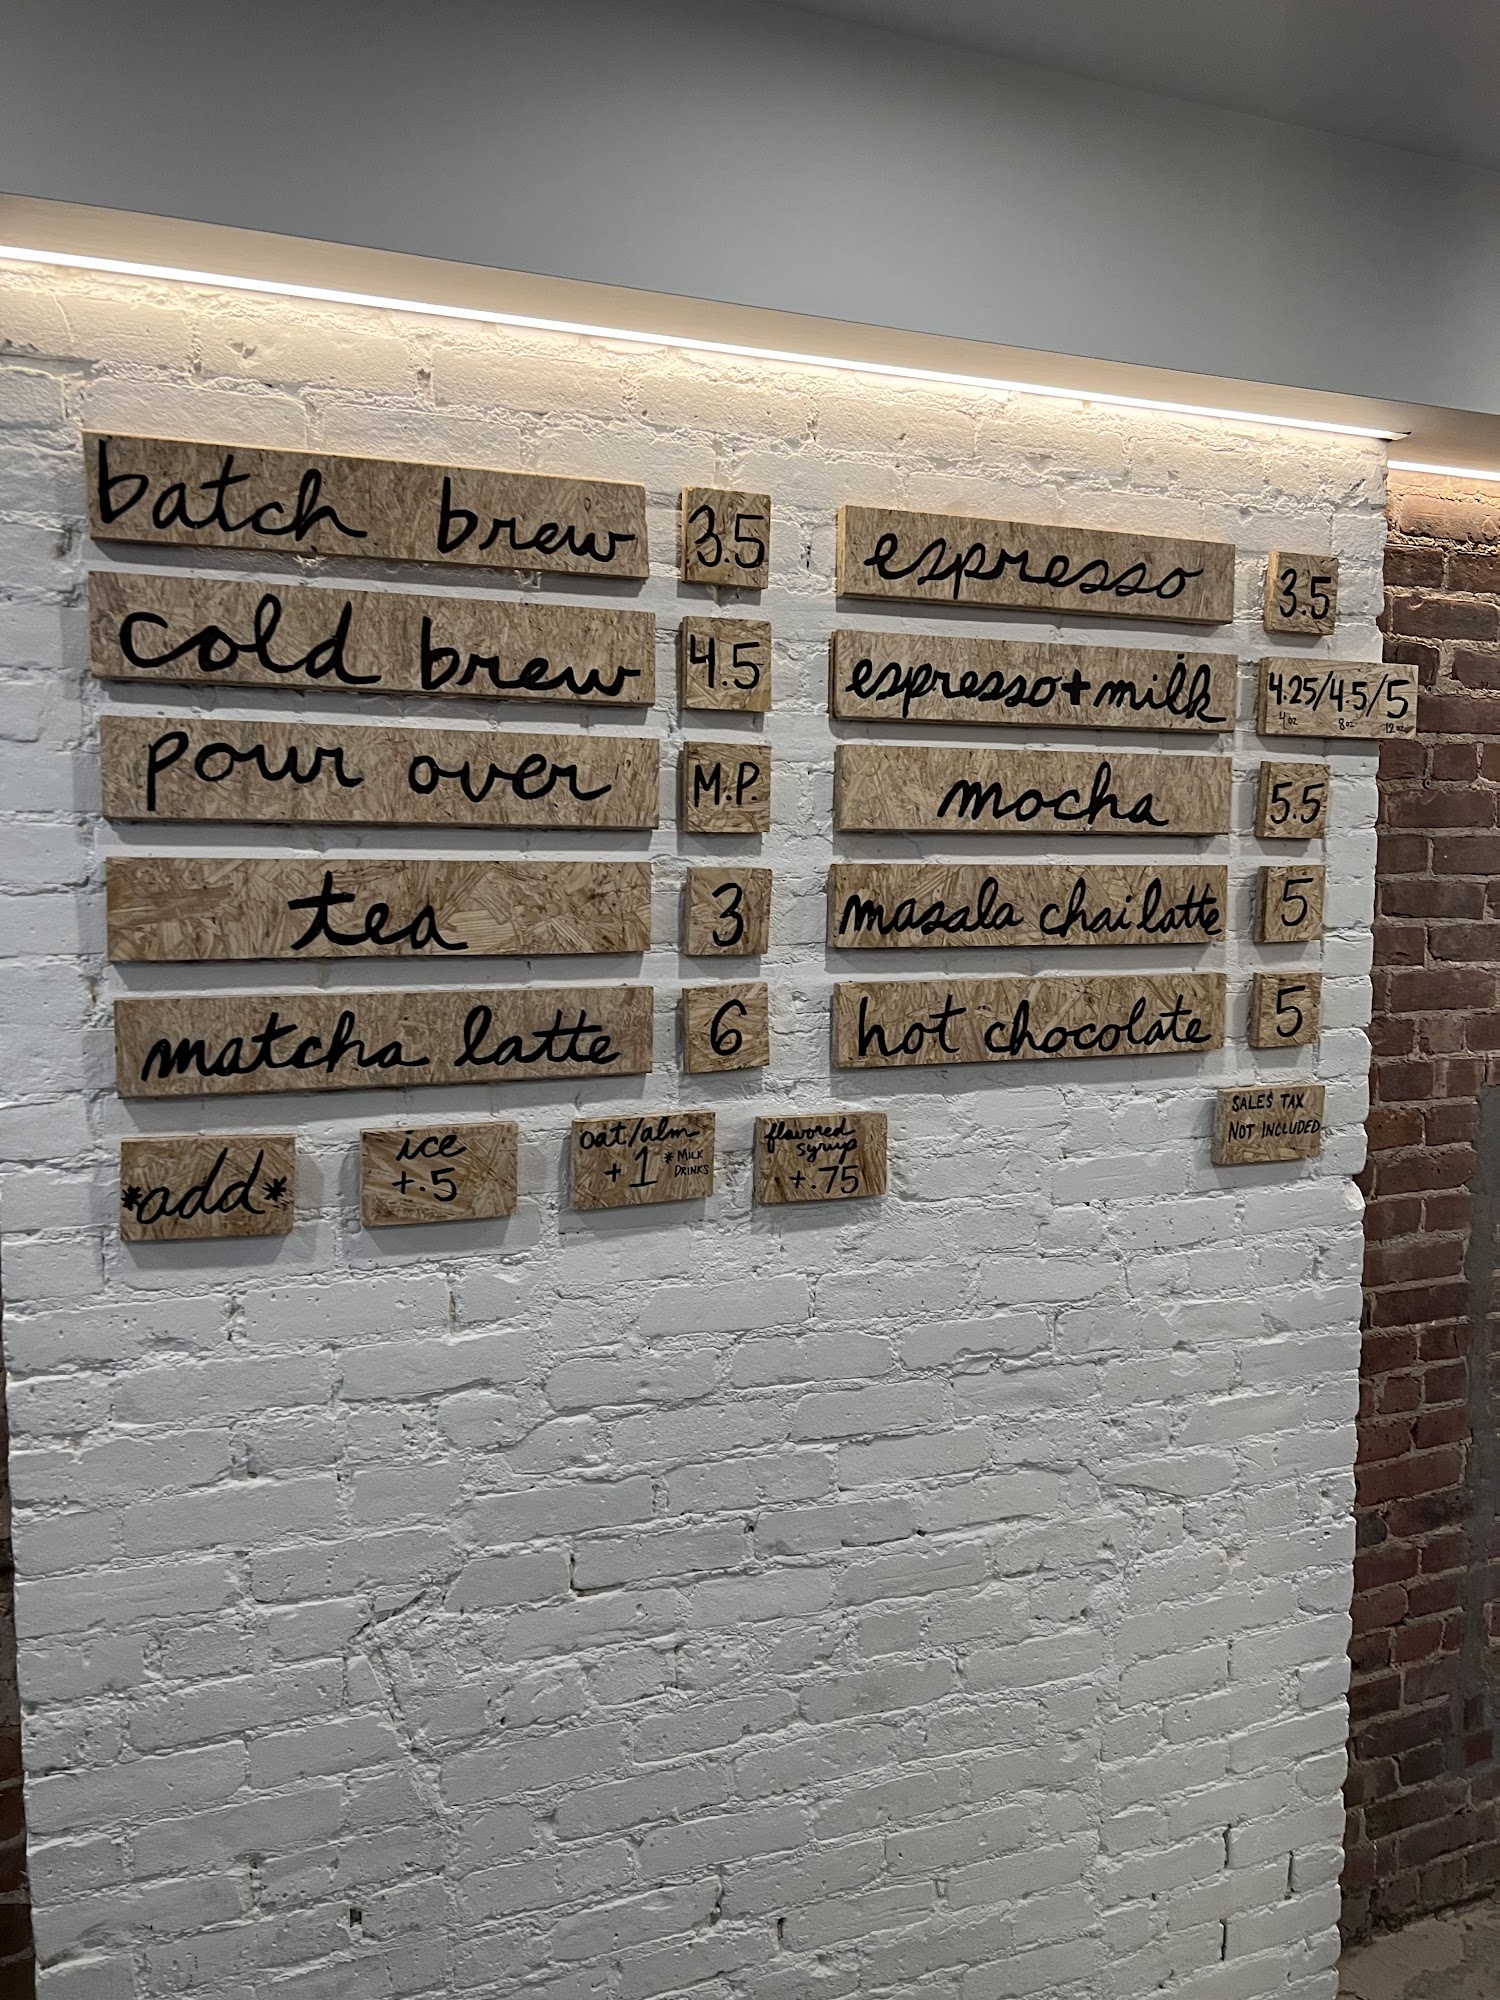 batch brew 3.5
cold brew 4.5
pour over M.P.
tea 3
matcha latte 6
espresso 3.5
espresso + milk 4.25/4.5/5
4oz 8oz 12oz
mocha 5.5
masala chai latte 5
hot chocolate 5
*add*
ice
+.5
oat/alm
+1 *MILK
DRINKS
flavored
syrup
+.75
SALES TAX
NOT INCLUDED